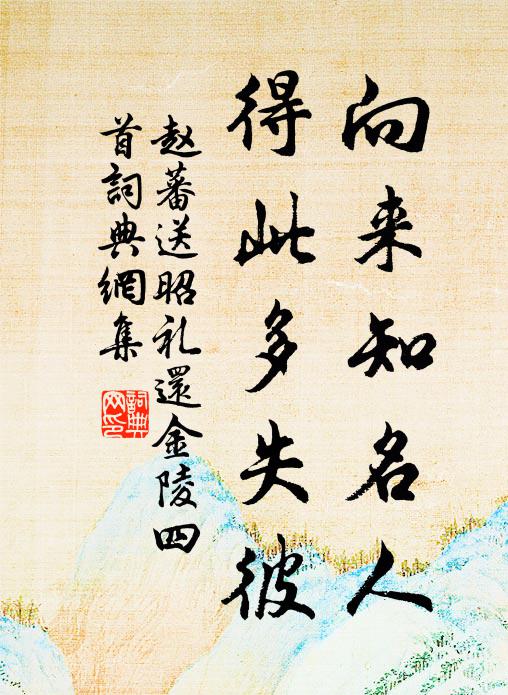 向来知名人
得此多失彼
赵蕃送昭礼還金陵四
首詞典網集
詞典
网印